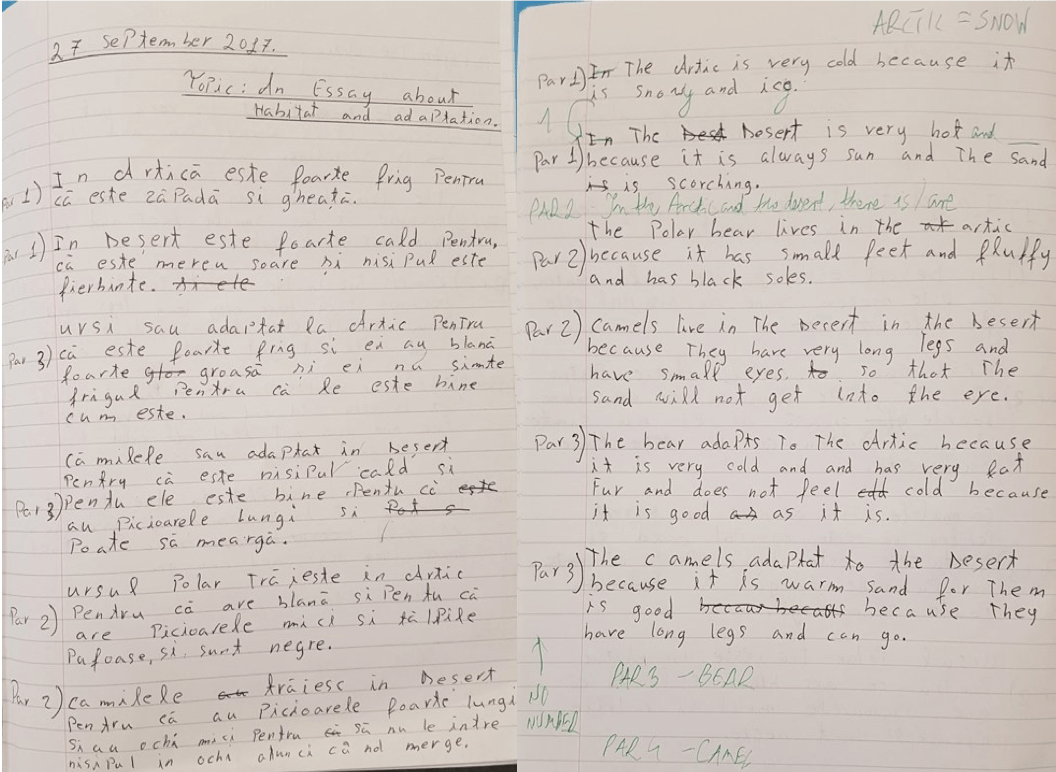 27 September 2017.
Topic: An Essay about
Habitat and adaptation.
Par 1) In Artică este foarte frig Pentru
că este zăPadă si gheață.
Par 1) In Desert este foarte cald Pentru,
că este mereu soare si nisiPul este
fierbinte. si ele
ursi sau adaPtat la Artic Pentru
Par 3) că este foarte frig si ei au blană
foarte groasă si ei nu simte
frigul Pentru că le este bine
cum este.
Cămilele sau adaPtat in Desert
Pentry că este nisiPul cald si
Par 3) Pentu ele este bine Pentu că este
au Picioarele lungi si Pot s
Poate să meargă.
ursul Polar Trăieste in Artic
Par 2) Pentru că are blană si Pentu că
are Picioarele mici si tălPile
Pufoase, si sunt negre.
Par 2) Camilele au trăiesc in Desert
Pentru că au Picioarele foarte lungi
Si au ochi mici Pentru că să nu le intre
nisiPul in ochi atunci când merge.
ARCTIC = SNOW
Par 1) In The Artic is very cold because it
is snowy and icy.
1
In The Dest Desert is very hot and
Par 1) because it is always sun and The sand
is is scorching.
PAR 2 - In the Arctic and the desert, there is/are
The Polar bear lives in the at artic
Par 2) because it has small feet and fluffy
and has black soles.
Par 2) Camels live in The Decert in the Desert
because They have very long legs and
have small eyes. to so that The
sand will not get into the eye.
Par 3) The bear adaPts To The Artic because
it is very cold and and has very fat
Fur and does not feel edd cold because
it is good as as it is.
Par 3) The camels adaPtat to the Desert
because it is warm sand for Them
is good becaus becaus because They
have long legs and can go.
PAR 3 - BEAR
NO
NUMBER
PAR 4 - CAMEL